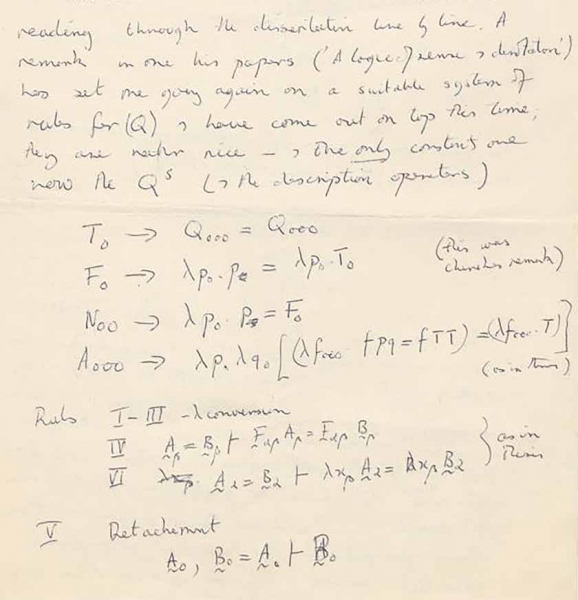 reading through the dissertation line by line. A
remark in one his papers ('A logic of sense & denotation')
has set me going again on a suitable system of
rules for (Q) & have come out on top this time;
they are rather nice – & the only constants are
now the Qˢ (& the description operators)
T₀ → Q₀₀₀ = Q₀₀₀
F₀ → λp₀.p₀ = λp₀.T₀ (this was
Church's remark)
N₀₀ → λp₀.p₀ = F₀
A₀₀₀ → λp.λq₀[(λf₀₀₀ fpq = fTT) = (λf₀₀₀.T)]
(as in thesis)
Rules I–III – λ conversion
IV A_β = B_β ⊢ F_αβ A_β = F_αβ B_β } as in
Thesis
VI A_α = B_α ⊢ λx_β A_α = λx_β B_α
V Detachement
A₀, B₀ = A₀ ⊢ B₀